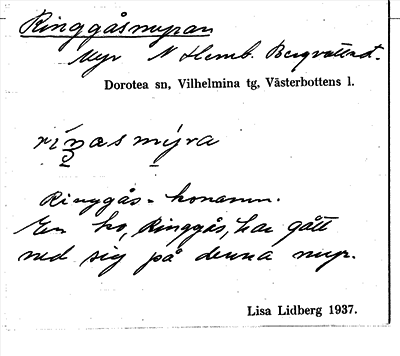 Ringgåsmyran
Myr N Hemb. Bergvattnet.
Dorotea sn, Vilhelmina tg, Västerbottens l.
Ringgås-konamn.
En ko, Ringgås, har gått
ned sig på denna myr.
Lisa Lidberg 1937.